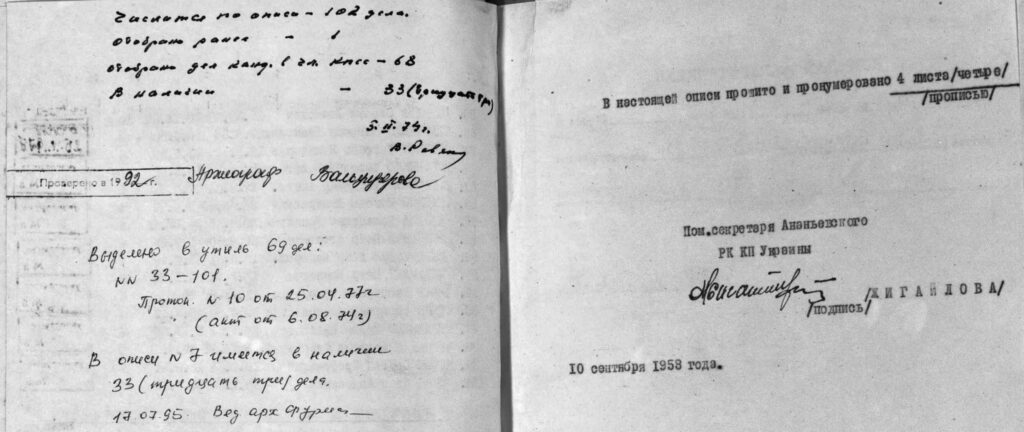 Числится по описи – 102 дела.
Отобрано ранее – 1
Отобрано дел канд. в чл. КПСС – 68
В наличии – 33 (тридцать три)
Проверено в 1992 г. Археограф
Выделено в утиль 69 дел:
NN 33 – 101.
Проток. N 10 от 25.04.77г
(акт от 6.08.74г)
В описи N 7 имеется в наличии
33 (тридцать три) дела.
17.07.95. Вед арх
В настоящей описи прошито и пронумеровано 4 листа/четыре/
/прописью/
Пом.секретаря Ананьевского
РК КП Украины
/ЖИГАЙЛОВА/
/подпись/
10 сентября 1958 года.